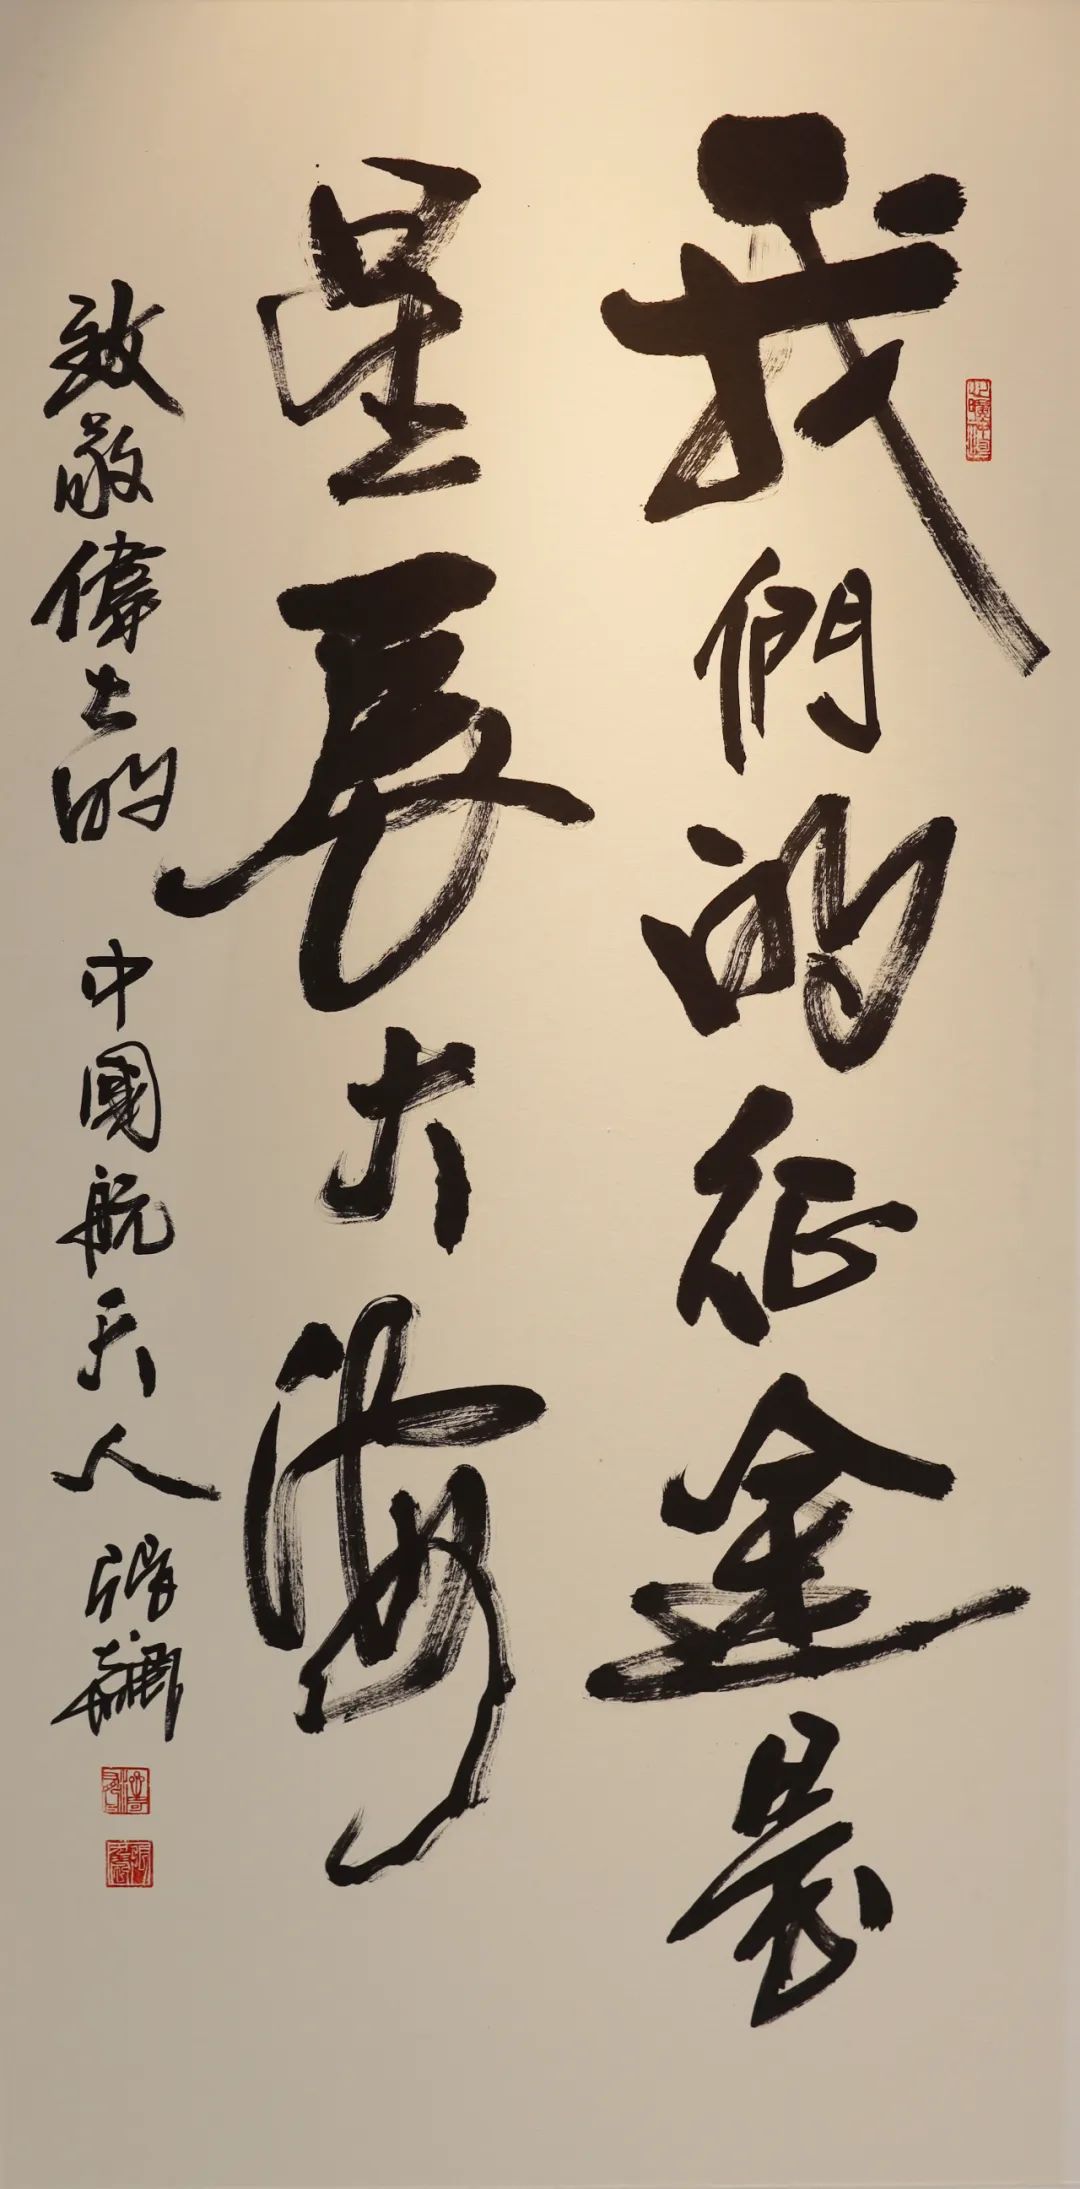 我們的征途是
星辰大海
致敬偉大的 中國航天人 張